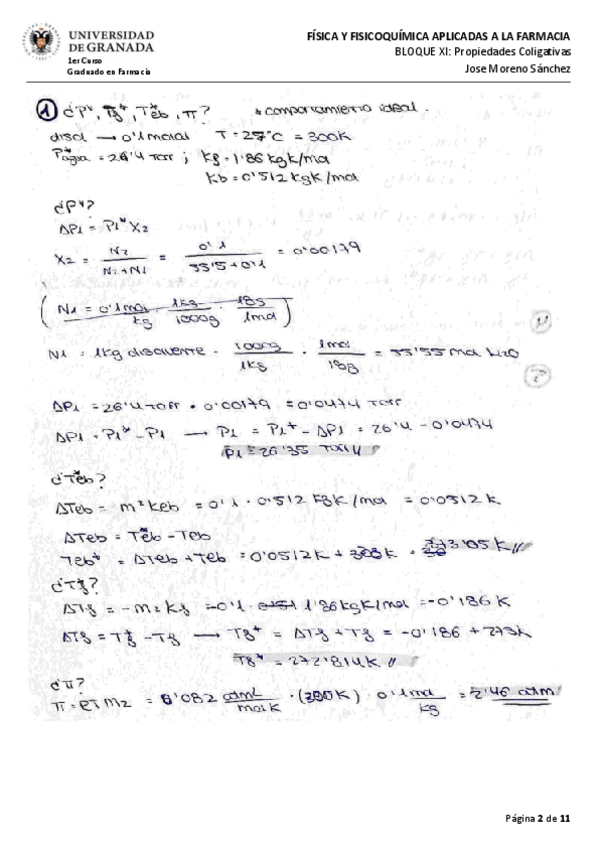 UNIVERSIDAD
DE GRANADA
1er Curso
Graduado en Farmacia
FÍSICA Y FISICOQUÍMICA APLICADAS A LA FARMACIA
BLOQUE XI: Propiedades Coligativas
Jose Moreno Sánchez
① ¿Pᵛ, Tf*, Teb*, π? * comportamiento ideal.
disol → 0'1 molal T = 27ºC = 300K
P*agua = 26'4 Torr ; Kf = 1'86 kgK/mol
Kb = 0'512 kgK/mol
¿Pᵛ?
ΔP1 = P1* X2
X2 = N2 / (N2+N1) = 0'1 / (55'5+0'1) = 0'00179
(N1 = 0'1 mol/kg · 1kg/1000g · 18g/1mol)
N1 = 1kg disolvente · 1000g/1kg · 1mol/18g = 55'55 mol H2O
ΔP1 = 26'4 Torr · 0'00179 = 0'0474 Torr
ΔP1 = P1* - P1 → P1 = P1* - ΔP1 = 26'4 - 0'0474
P1 = 26'35 Torr //
¿Teb*?
ΔTeb = m2 Keb = 0'1 · 0'512 kgK/mol = 0'0512 K
ΔTeb = Teb* - Teb
Teb* = ΔTeb + Teb = 0'0512K + K = 373'05 K //
¿Tf*?
ΔTf = -m2 Kf = -0'1 · 1'86 kgK/mol = -0'186 K
ΔTf = Tf* - Tf → Tf* = ΔTf + Tf = -0'186 + 273K
Tf* = 272'814K //
¿π?
π = RTm2 = 0'082 atmL/molK · (300K) · 0'1 mol/kg = 2'46 atm
Página 2 de 11